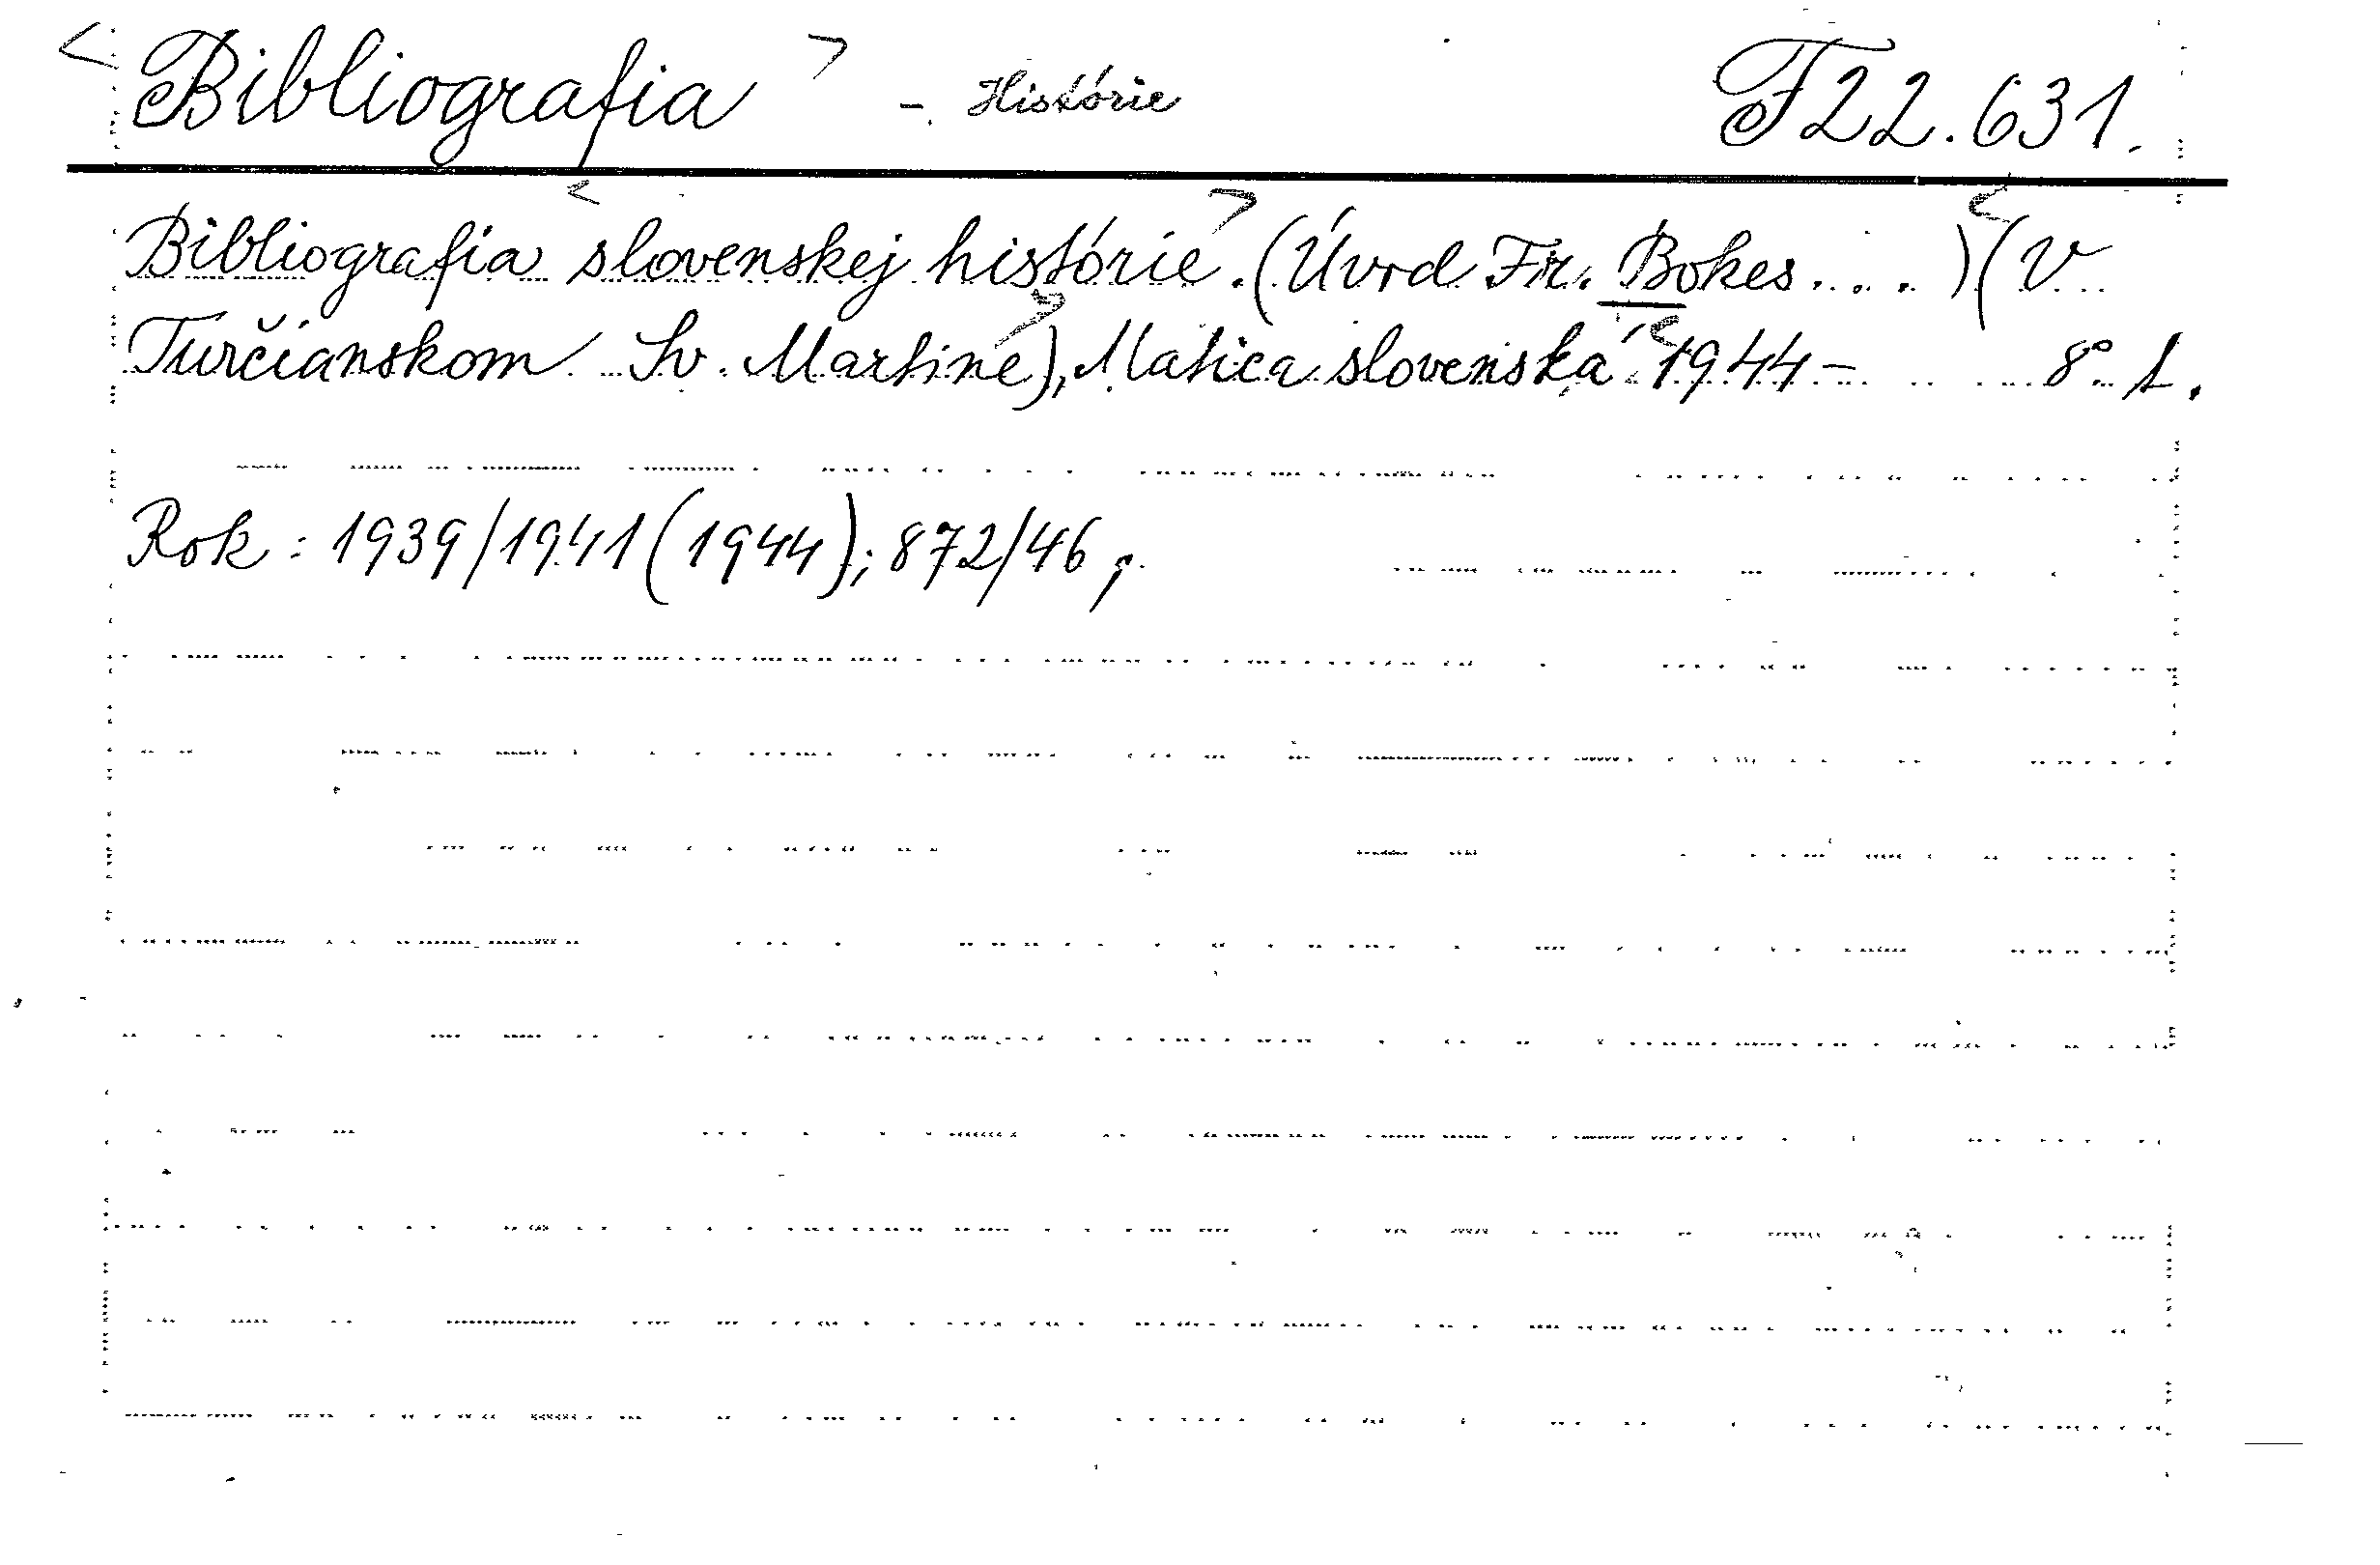 <Bibliografia> - Histórie F 22.631.
Bibliografia <slovenskej histórie>. (Úvod Fr. Bokes....) <(V
Turčianskom Sv. Martine)>, Matica slovenská <1944- 8° 1.
Rok: 1939/1941 (1944); 872/46 p.